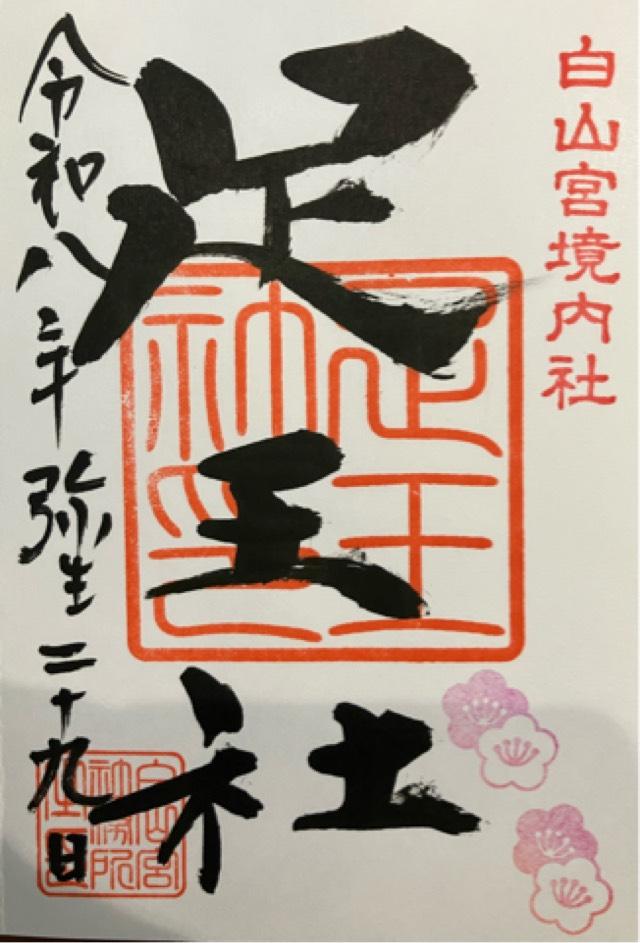 白山宮境内社
足王社
令和八年弥生二十九日
足王神印
白山宮社務所之印